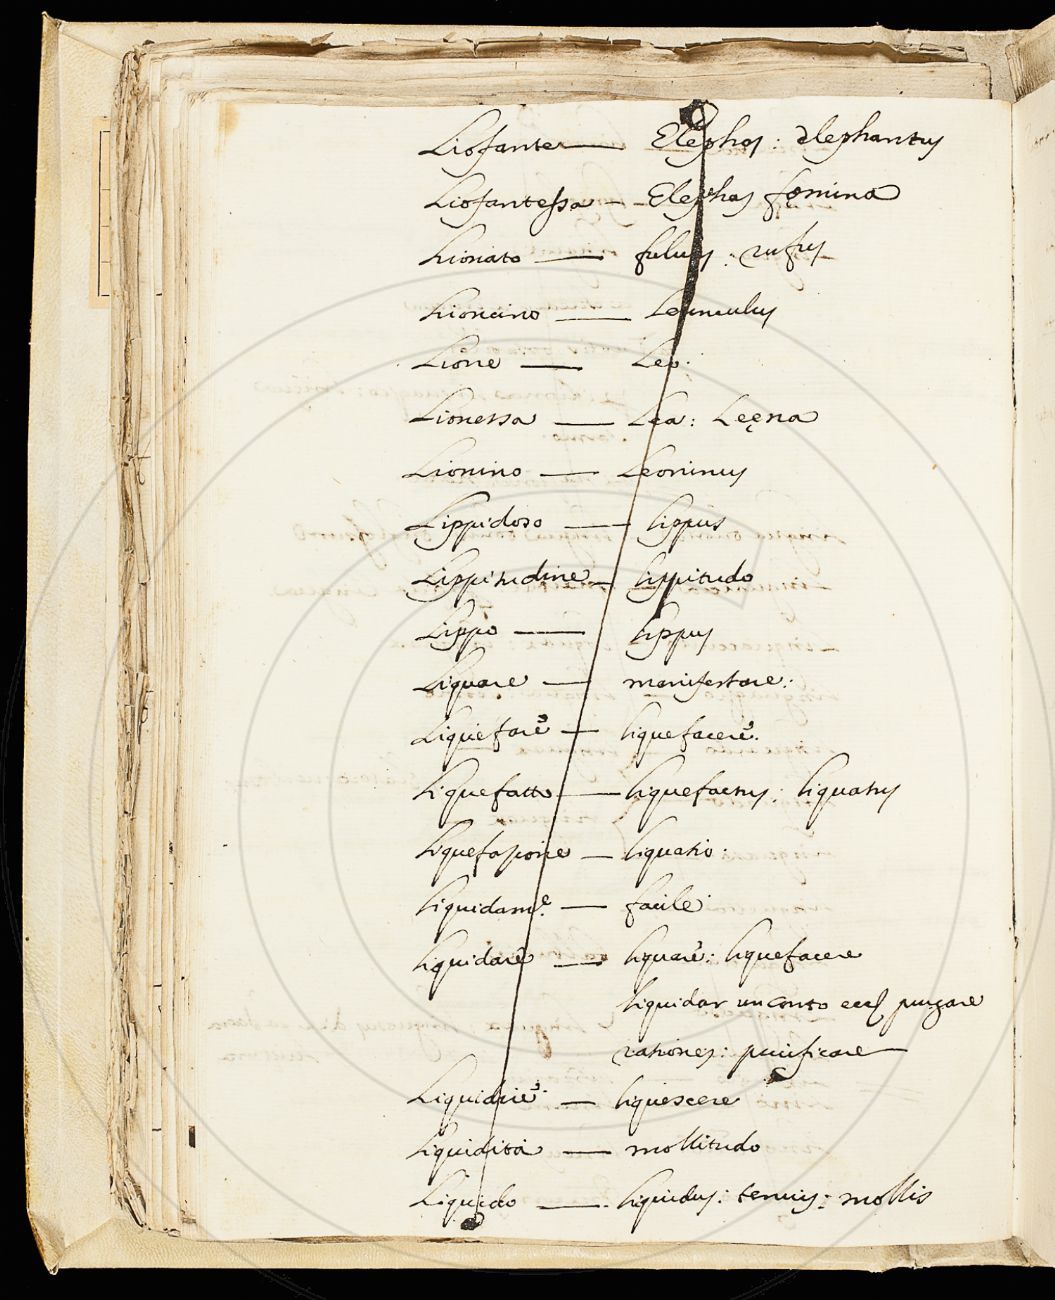 Liofante — Elephas: elephantus
Liofantessa — Elephas fęmina
Lionato — fulvus: rufus
Lioncino — Leunculus
Lione — Leo.
Lionessa — Lea: Leęna
Lionino — Leoninus
Lippidoso — lippus
Lippitudine — lippitudo
Lippo — lippus
Liquare — manifestare:
Liquefare — liquefacere.
Liquefatto — liquefactus: liquatus
Liquefazione — liquatio:
Liquidame. — facile:
liquidare — liquare: liquefacere
liquidar un conto purgare
rationes: purificare
Liquidire. — liquescere
liquidità — mollitudo
Liquido — liquidus: tenuis: mollis